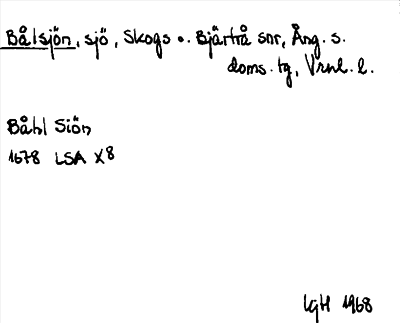 Bålsjön, sjö, Skogs o. Bjärtrå snr, Ång. s.
doms. tg, Vrnl. l.
Båhl Siön
1678 LSA X8
LgH 1968